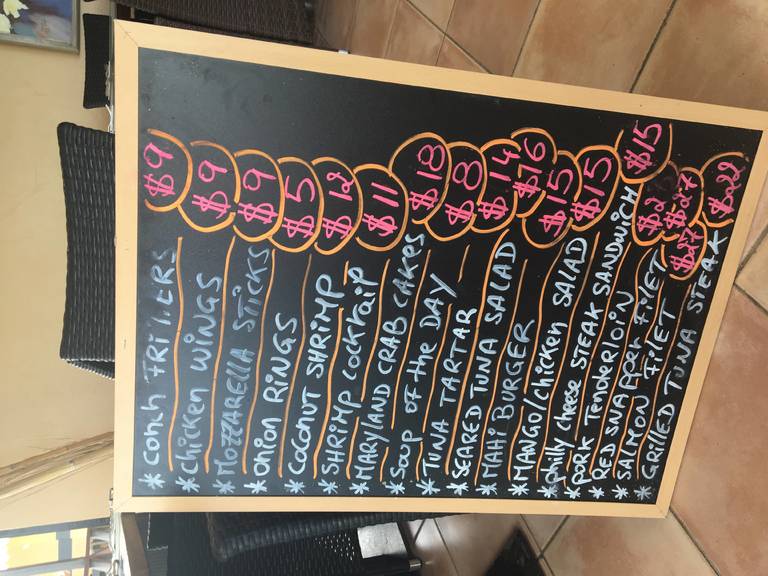 * conch FRiTTERS $9
* chicken WiNGS $9
* MOZZARELLA STicKS $9
* oNioN RiNGS $5
* COCONUT SHRiMP $12
* SHRiMP cocktail $11
* MARYLAND CRAB CAKES $18
* Soup of the DAY $8
* TUNA TARTAR $14
* SEARED TUNA SALAD $16
* MAHi BURGER $15
* MANGO/chicken SALAD $15
* philly cheese STEAK SANDWicH $15
* pork Tenderloin
* RED SNAPPER FiLET $27
* SALMON FiLET $27
* GRilled TUNA STEAK $22